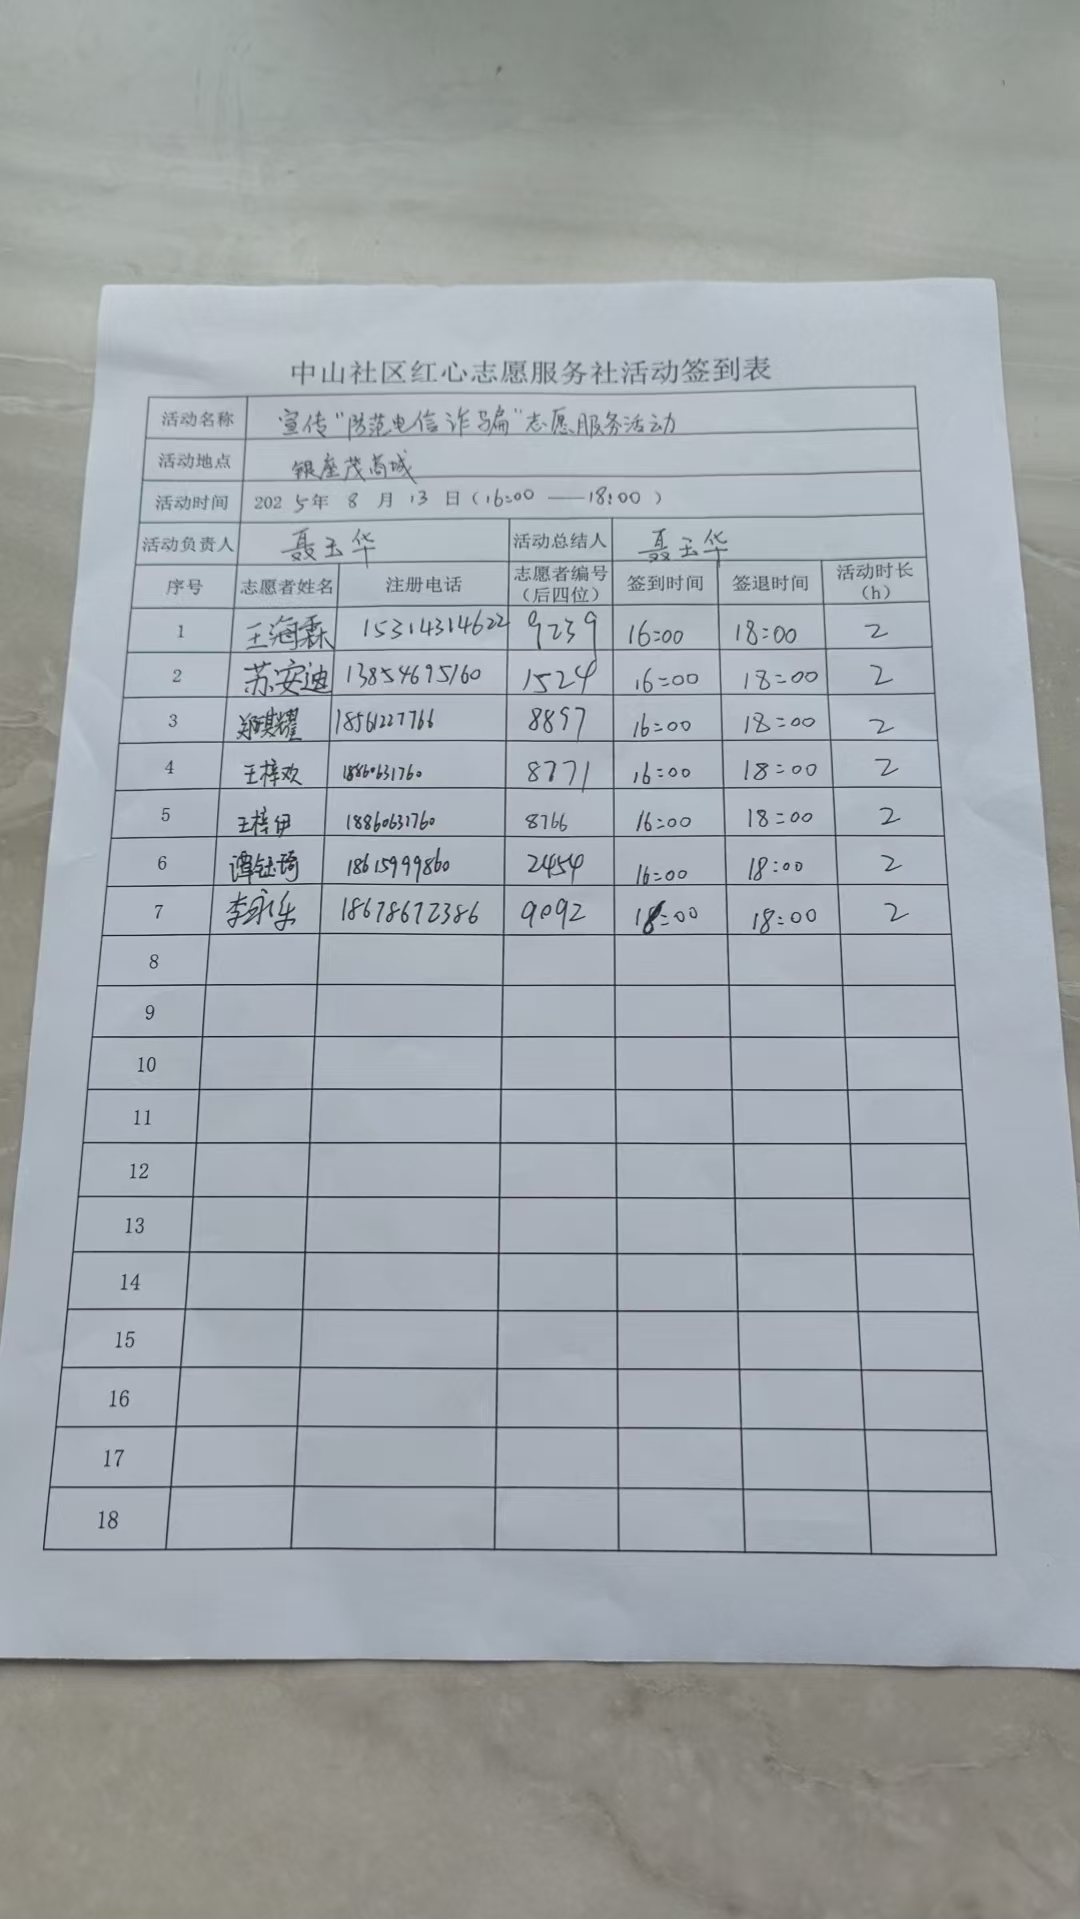 中山社区红心志愿服务社活动签到表
活动名称 宣传“防范电信诈骗”志愿服务活动
活动地点 银座茂商城
活动时间 2025年 8 月 13 日（16:00 — 18:00 ）
活动负责人 聂玉华 活动总结人 聂玉华
序号 志愿者姓名 注册电话 志愿者编号（后四位） 签到时间 签退时间 活动时长（h）
1 王海霖 15314314622 9239 16:00 18:00 2
2 苏安迪 13854695160 1524 16:00 18:00 2
3 郑棋耀 18561227766 8897 16:00 18:00 2
4 王梓欢 18860631760 8771 16:00 18:00 2
5 王梓伊 18860631760 8766 16:00 18:00 2
6 谭钰琦 18615999860 2454 16:00 18:00 2
7 李永乐 18678672386 9092 18:00 2
8
9
10
11
12
13
14
15
16
17
18